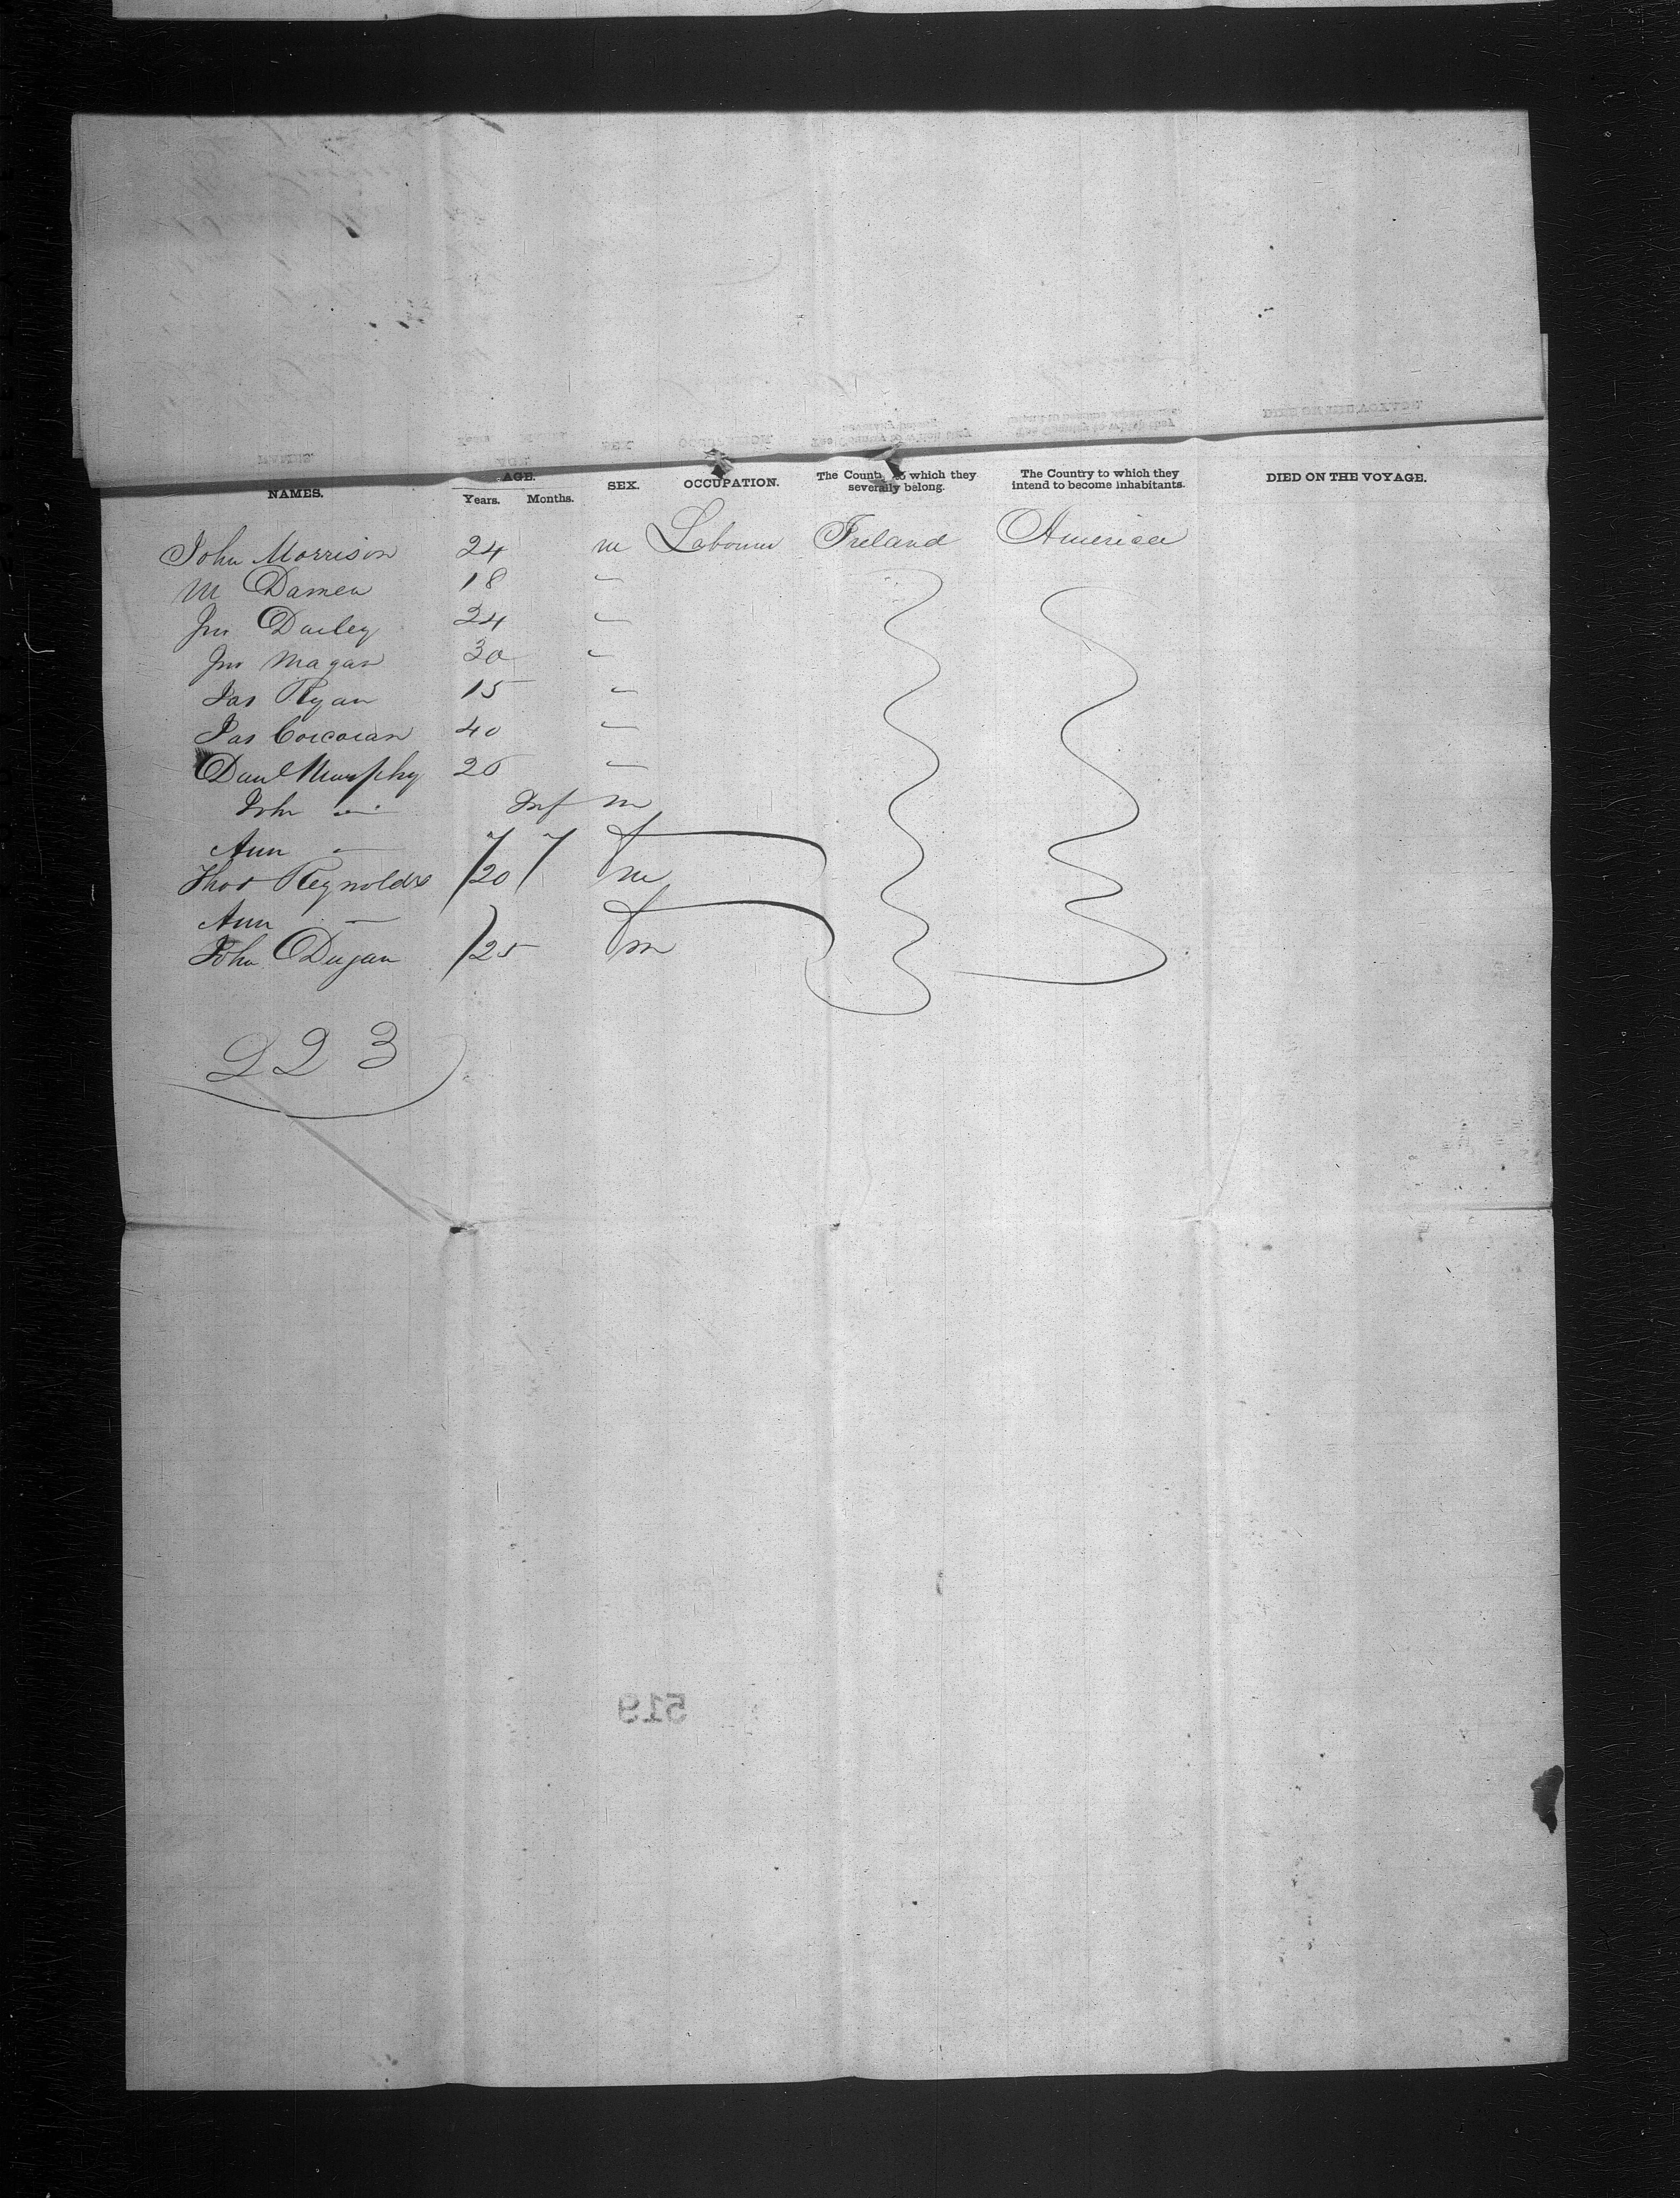 NAMES. AGE. Years. Months. SEX. OCCUPATION. The Country to which they severally belong. The Country to which they intend to become inhabitants. DIED ON THE VOYAGE.
John Morrison 24 m Labourer Ireland America
M Damen 18 "
Jno Dailey 24 "
Jno Magan 30 "
Jas Ryan 15 "
Jas Corcoran 40 "
Danl Murphy 26 "
John — Inf m
Ann — 7 7 f
Thos Reynolds 20 m
Ann — f
John Dugan 25 m
223
519